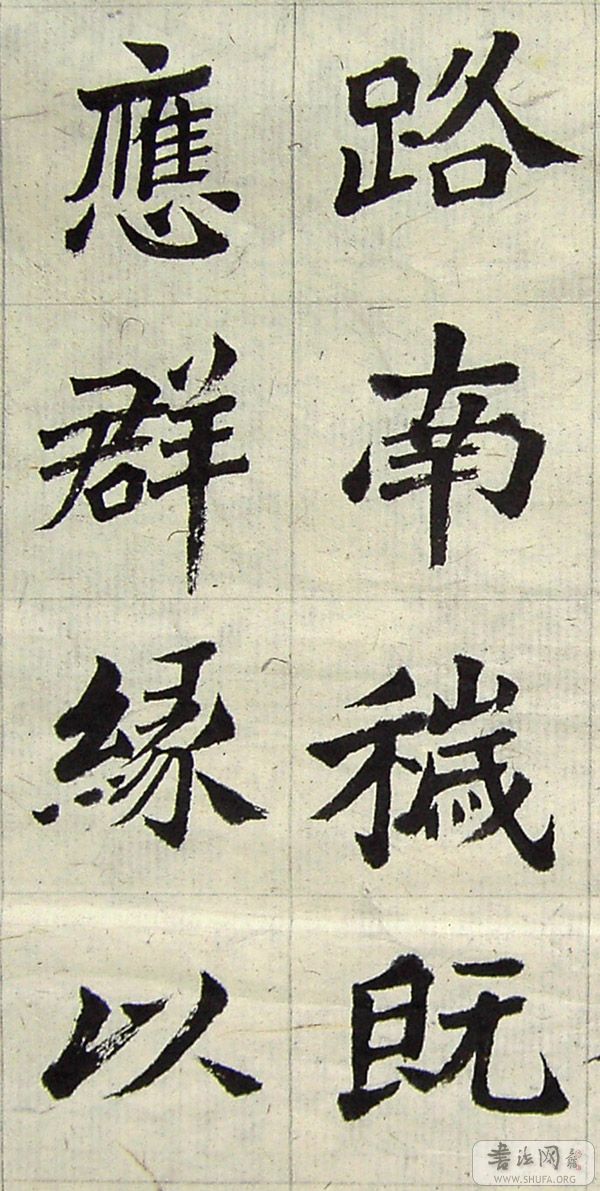 路南穢既
應群緣以
書法网
WWW.SHUFA.ORG